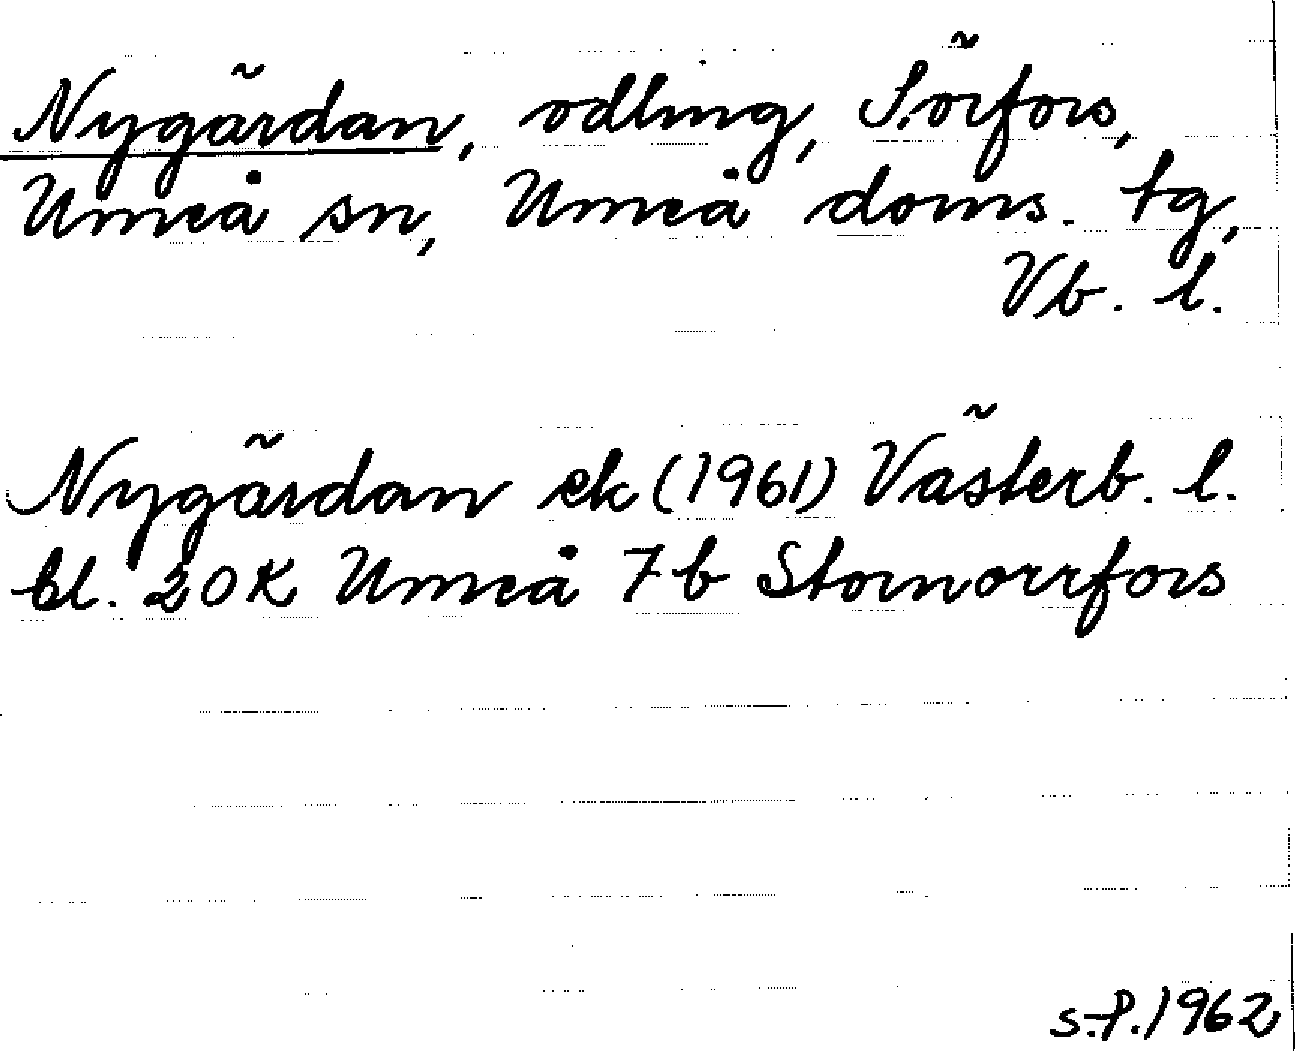 Nygärdan, odling, Sörfors,
Umeå sn, Umeå doms. tg,
Vb. l.
Nygärdan ek (1961) Västerb. l.
bl. 20K Umeå 7b Stornorrfors
S.P. 1962